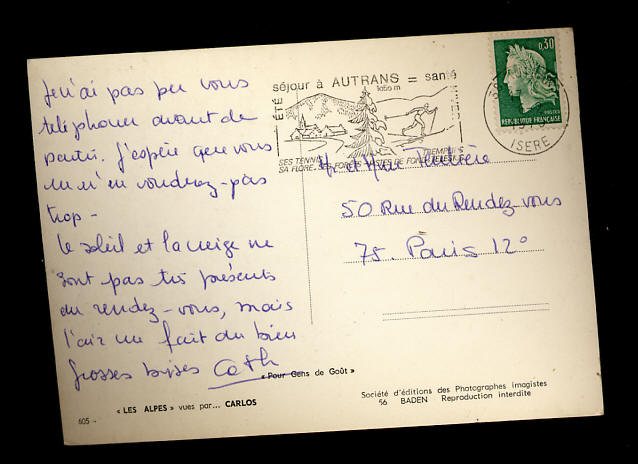 Je n'ai pas pu vous
téléphoner avant de
partir. J'espère que vous
ne m'en voudrez pas
trop -
Le soleil et la neige ne
sont pas très présents
au rendez-vous, mais
l'air me fait du bien
Grosses bises Cath
séjour à AUTRANS = santé
1050 m
ÉTÉ
HIVER
SES TENNIS
SA FLORE, SES FORÊTS
TREMPLINS
PISTES DE FOND
0,30
POSTES
REPUBLIQUE FRANÇAISE
ISERE
Mr et Mme
50 Rue du Rendez-vous
75. Paris 12°
« Pour Gens de Goût »
« LES ALPES » vues par... CARLOS
605 -
Société d'éditions des Photographes imagistes
56 BADEN Reproduction interdite